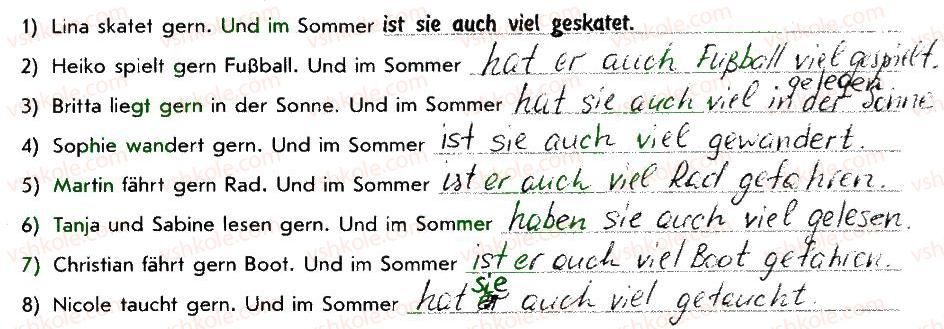 1) Lina skatet gern. Und im Sommer ist sie auch viel geskatet.
2) Heiko spielt gern Fußball. Und im Sommer hat er auch Fußball viel gespielt.
3) Britta liegt gern in der Sonne. Und im Sommer hat sie auch viel in der Sonne gelegen
4) Sophie wandert gern. Und im Sommer ist sie auch viel gewandert.
5) Martin fährt gern Rad. Und im Sommer ist er auch viel Rad gefahren.
6) Tanja und Sabine lesen gern. Und im Sommer haben sie auch viel gelesen.
7) Christian fährt gern Boot. Und im Sommer ist er auch viel Boot gefahren.
8) Nicole taucht gern. Und im Sommer hat sie auch viel getaucht.